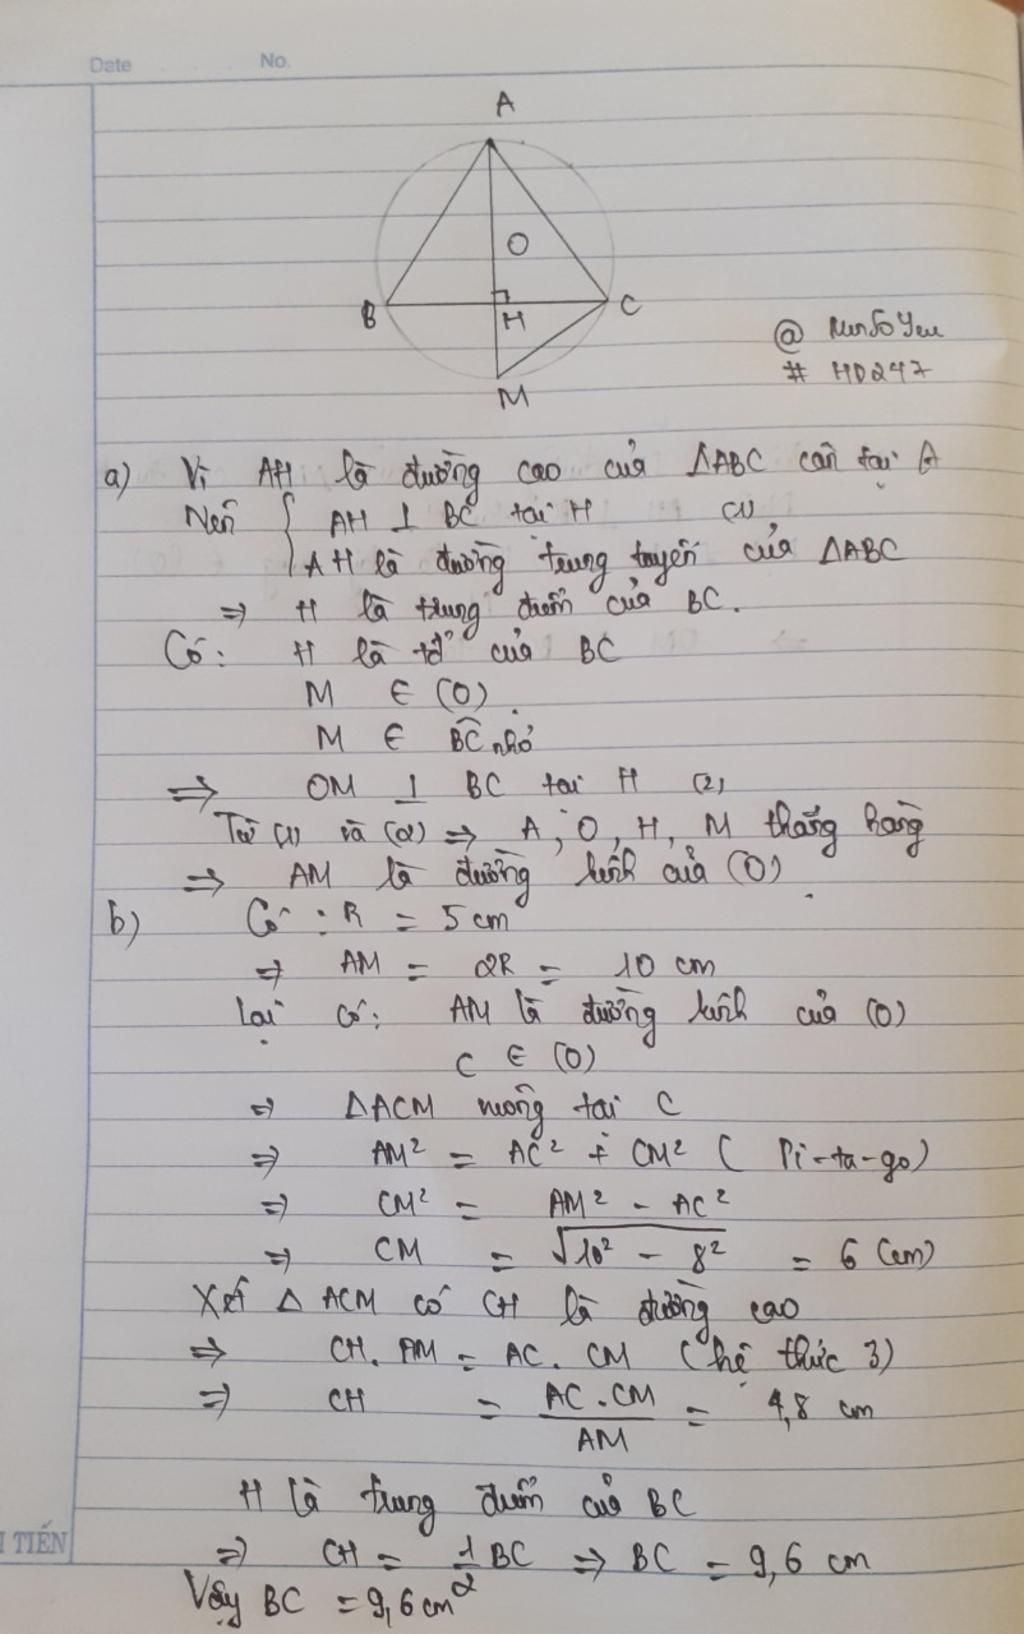 Date No.
A
O
B H C
M
@
# HD247
a) Vì AH là đường cao của ΔABC cân tại A
Nên { AH ⊥ BC tại H (1)
AH là đường trung tuyến của ΔABC
⇒ H là trung điểm của BC.
Có: H là tđ của BC
M ∈ (O)
M ∈ BC nhỏ
⇒ OM ⊥ BC tại H (2)
Từ (1) và (2) ⇒ A, O, H, M thẳng hàng
⇒ AM là đường kính của (O)
b) Có: R = 5 cm
⇒ AM = 2R = 10 cm
Lại có: AM là đường kính của (O)
C ∈ (O)
⇒ ΔACM vuông tại C
⇒ AM² = AC² + CM² (Pi-ta-go)
⇒ CM² = AM² - AC²
⇒ CM = √10² - 8² = 6 (cm)
Xét Δ ACM có CH là đường cao
⇒ CH. AM = AC. CM (hệ thức 3)
⇒ CH = AC.CM / AM = 4,8 cm
H là trung điểm của BC
⇒ CH = 1/2 BC ⇒ BC = 9,6 cm
Vậy BC = 9,6 cm
TIẾN